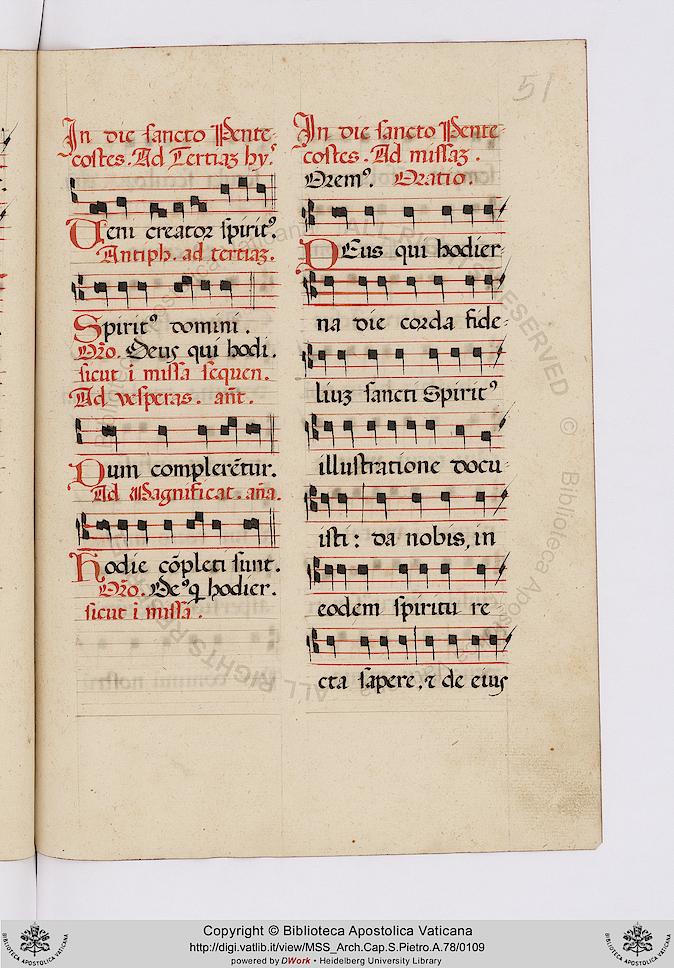 51
In die sancto Pente-
costes. Ad Tertiaꝫ hyꝰ
Veni creator spiritꝰ.
Antiph. ad tertiaꝫ.
Spiritꝰ domini.
Oro. Deus qui hodi.
sicut i missa sequen.
Ad vesperas. añt.
Dum complerẽtur.
Ad Magnificat. aña.
Hodie cõpleti sunt.
Oro. Deꝰ q hodier.
sicut i missa.
In die sancto Pente-
costes. Ad missaꝫ.
Oremꝰ. Oratio.
DEus qui hodier-
na die corda fide-
liuꝫ sancti Spiritꝰ
illustratione docu-
isti: da nobis, in
eodem spiritu re
cta sapere, ⁊ de eius
Copyright © Biblioteca Apostolica Vaticana
http://digi.vatlib.it/view/MSS_Arch.Cap.S.Pietro.A.78/0109
powered by DWork • Heidelberg University Library
BIBLIOTECA APOSTOLICA VATICANA
BIBLIOTECA APOSTOLICA VATICANA